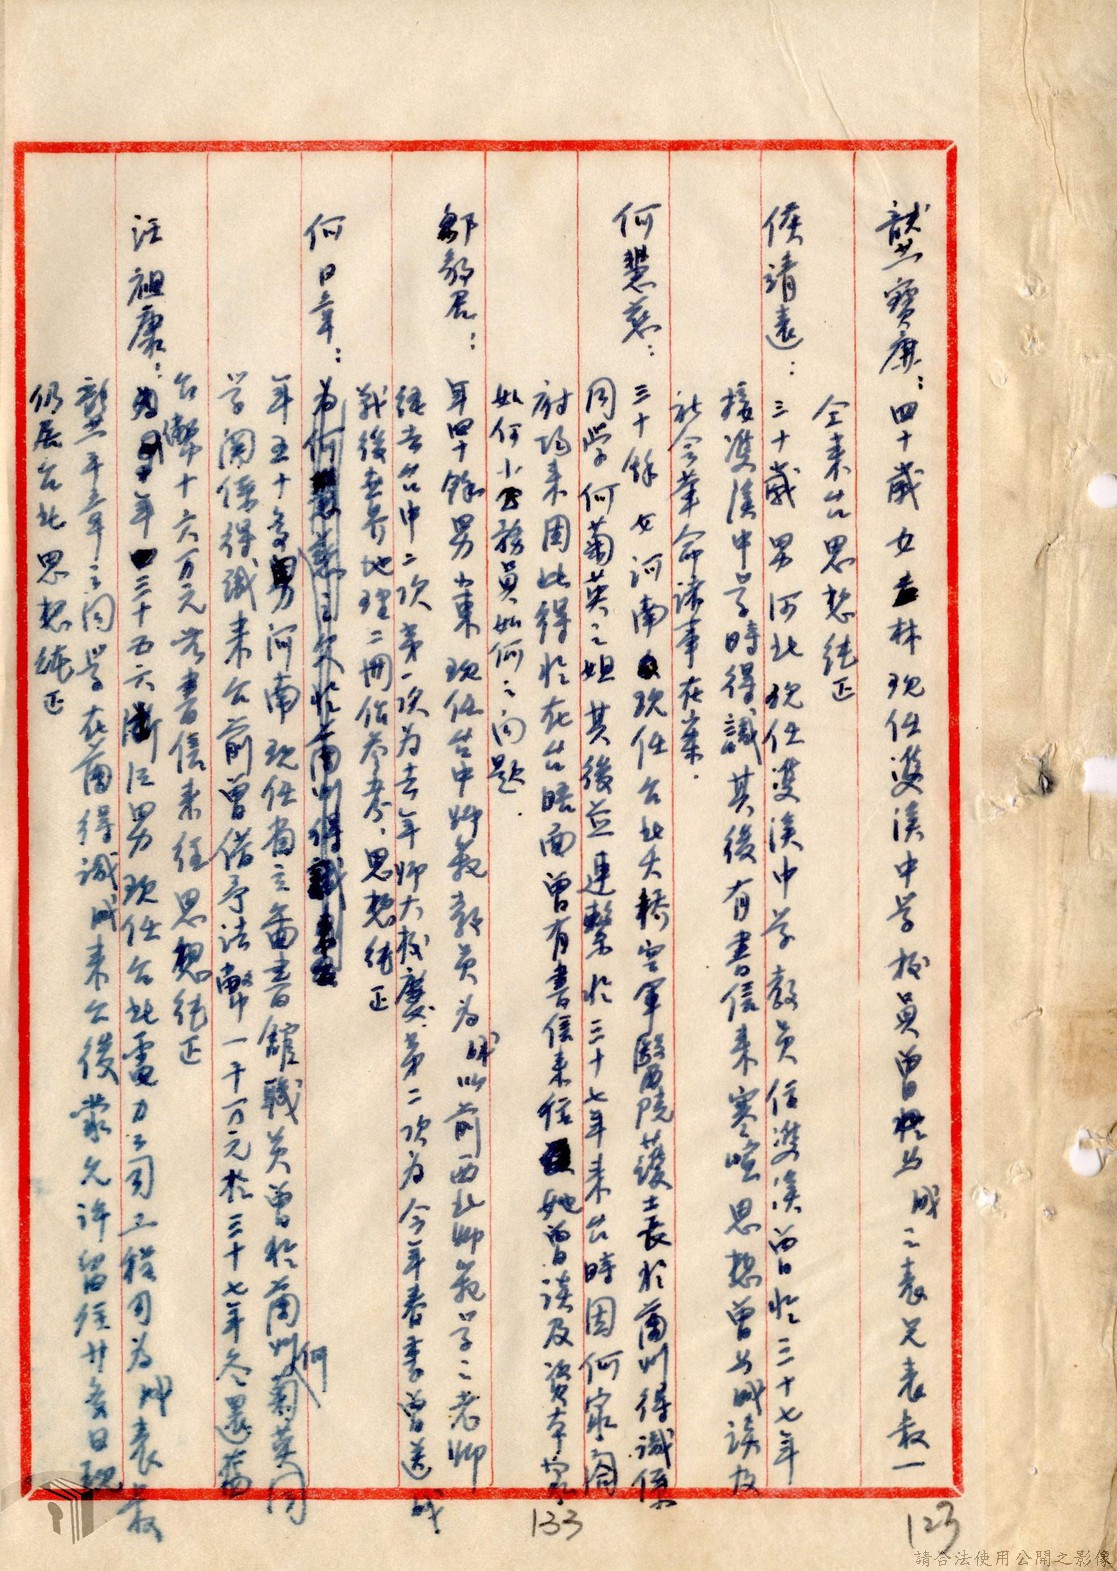 龔寶康：四十歲女吉林現任雙溪中學校員曾與職之表兄表叔一
仝來台思想純正
侯靖遠：三十歲男河北現任雙溪中学教員住雙溪曾於三十七年
接雙溪中学時得識其後有書信來寒喧思想曾與職談及
社会革命諸事在案．
何慧慈：三十餘女河南現任台北大橋空軍醫院護士長於蘭州得識係
同學何菊英之姐其後並連繫於三十七年來台時因何家閤
府均來因此得於在台晤面曾有書信來往她曾談及資本家
如何小公務員如何之问題．
鄒毅君：年四十餘男山東現任台中師範教員为職以前西北師範学之老师
経去台中二次第一次为去年师大校慶．第二次为今年春季曾送職
戰後世界地理二冊供参考、思想純正
何日章：为何慧慈之父於蘭州得識來台
年五十多男河南現任省立圖書舘職员曾於蘭州何菊英同
学関係得識來台前曾借予法幣一千万元於三十七年冬還舊
台幣十六万元若書信來往思想純正
汪祖康：年三十五六浙江男現任台北電力公司工程司为職表叔
龔平章之同学在蘭得識職來台後蒙允許留住廿多日現
仍居台北思想純正
133
123
請合法使用公開之影像